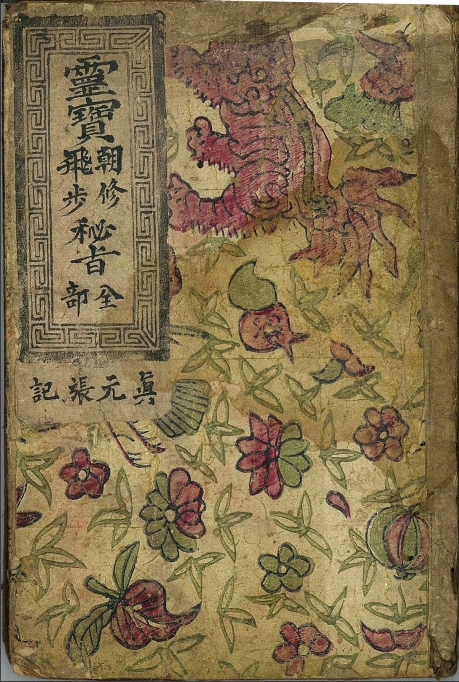 靈寶朝修飛步秘旨全部
記張元真